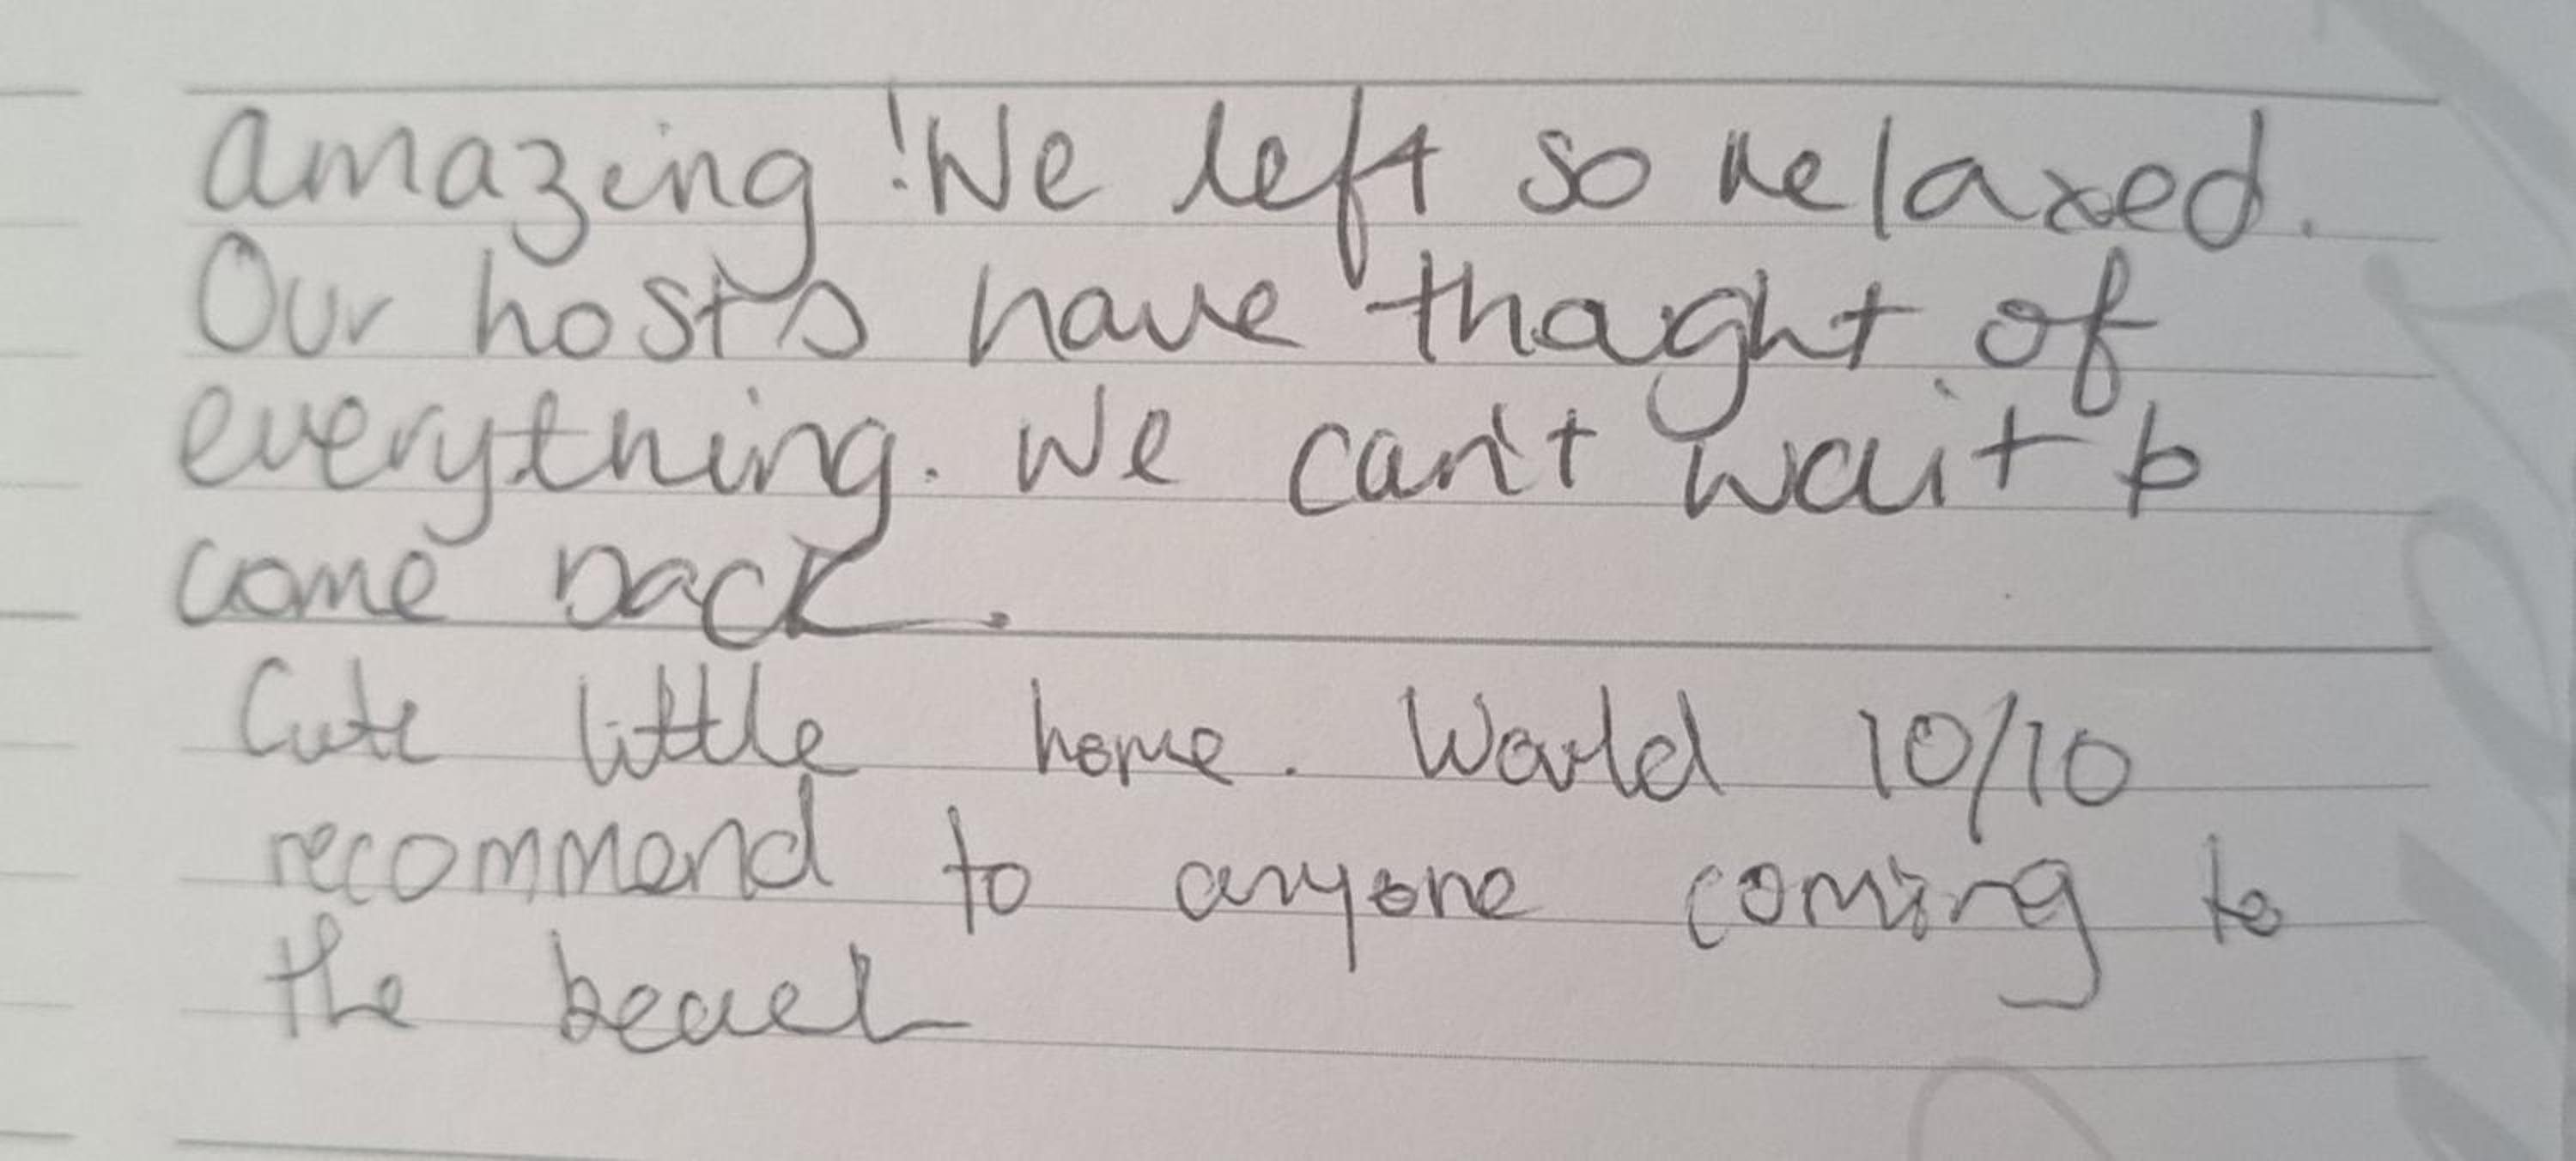 amazing! We left so relaxed.
Our hosts have thought of
everything. We can't wait to
come back.
Cute little home. Would 10/10
recommend to anyone coming to
the beach